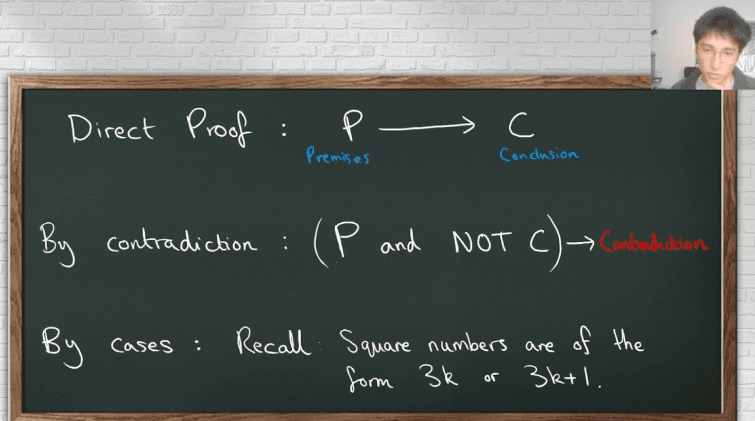 Direct Proof : P → C
Premises Conclusion
By contradiction : (P and NOT C) → Contradiction
By cases : Recall: Square numbers are of the
form 3k or 3k+1.